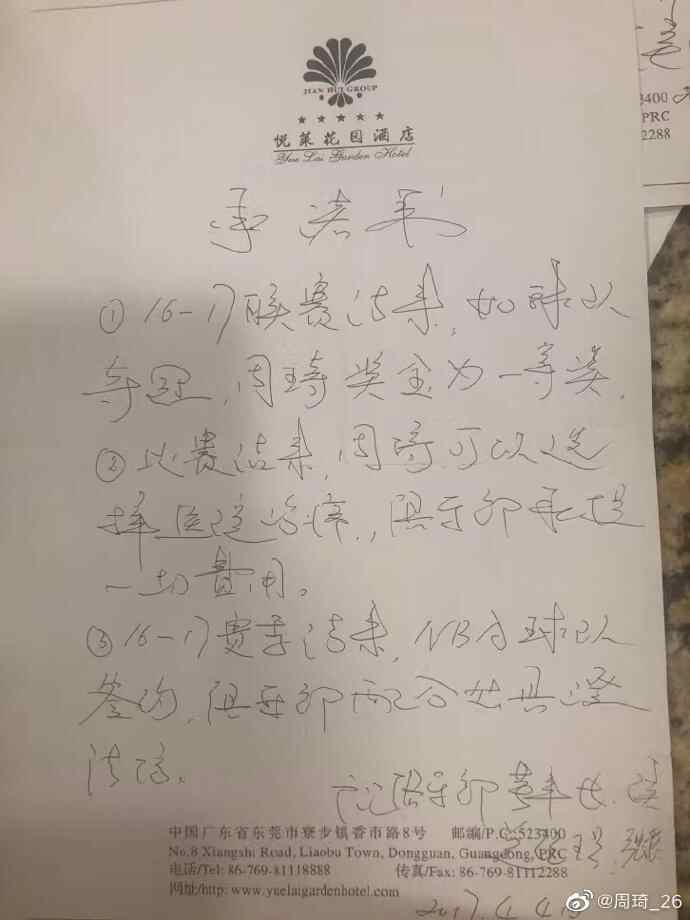 JIAN HUI GROUP
★★★★★
悦莱花园酒店
Yue Lai Garden Hotel
承诺书
① 16-17联赛结束,如球队
夺冠,周琦奖金为一等奖。
② 比赛结束,周琦可以选
择医院治疗,俱乐部承担
一切费用。
③ 16-17赛季结束,NBA球队
签约,俱乐部配合出具澄
清信。
俱乐部董事长
中国广东省东莞市寮步镇香市路8号 邮编/P.C:523400
No.8 Xiangshi Road, Liaobu Town, Dongguan, Guangdong, PRC
电话/Tel: 86-769-81118888 传真/Fax: 86-769-81112288
网址/http: www.yuelaigardenhotel.com
2017.4.4
3400
PRC
12288
@周琦_26